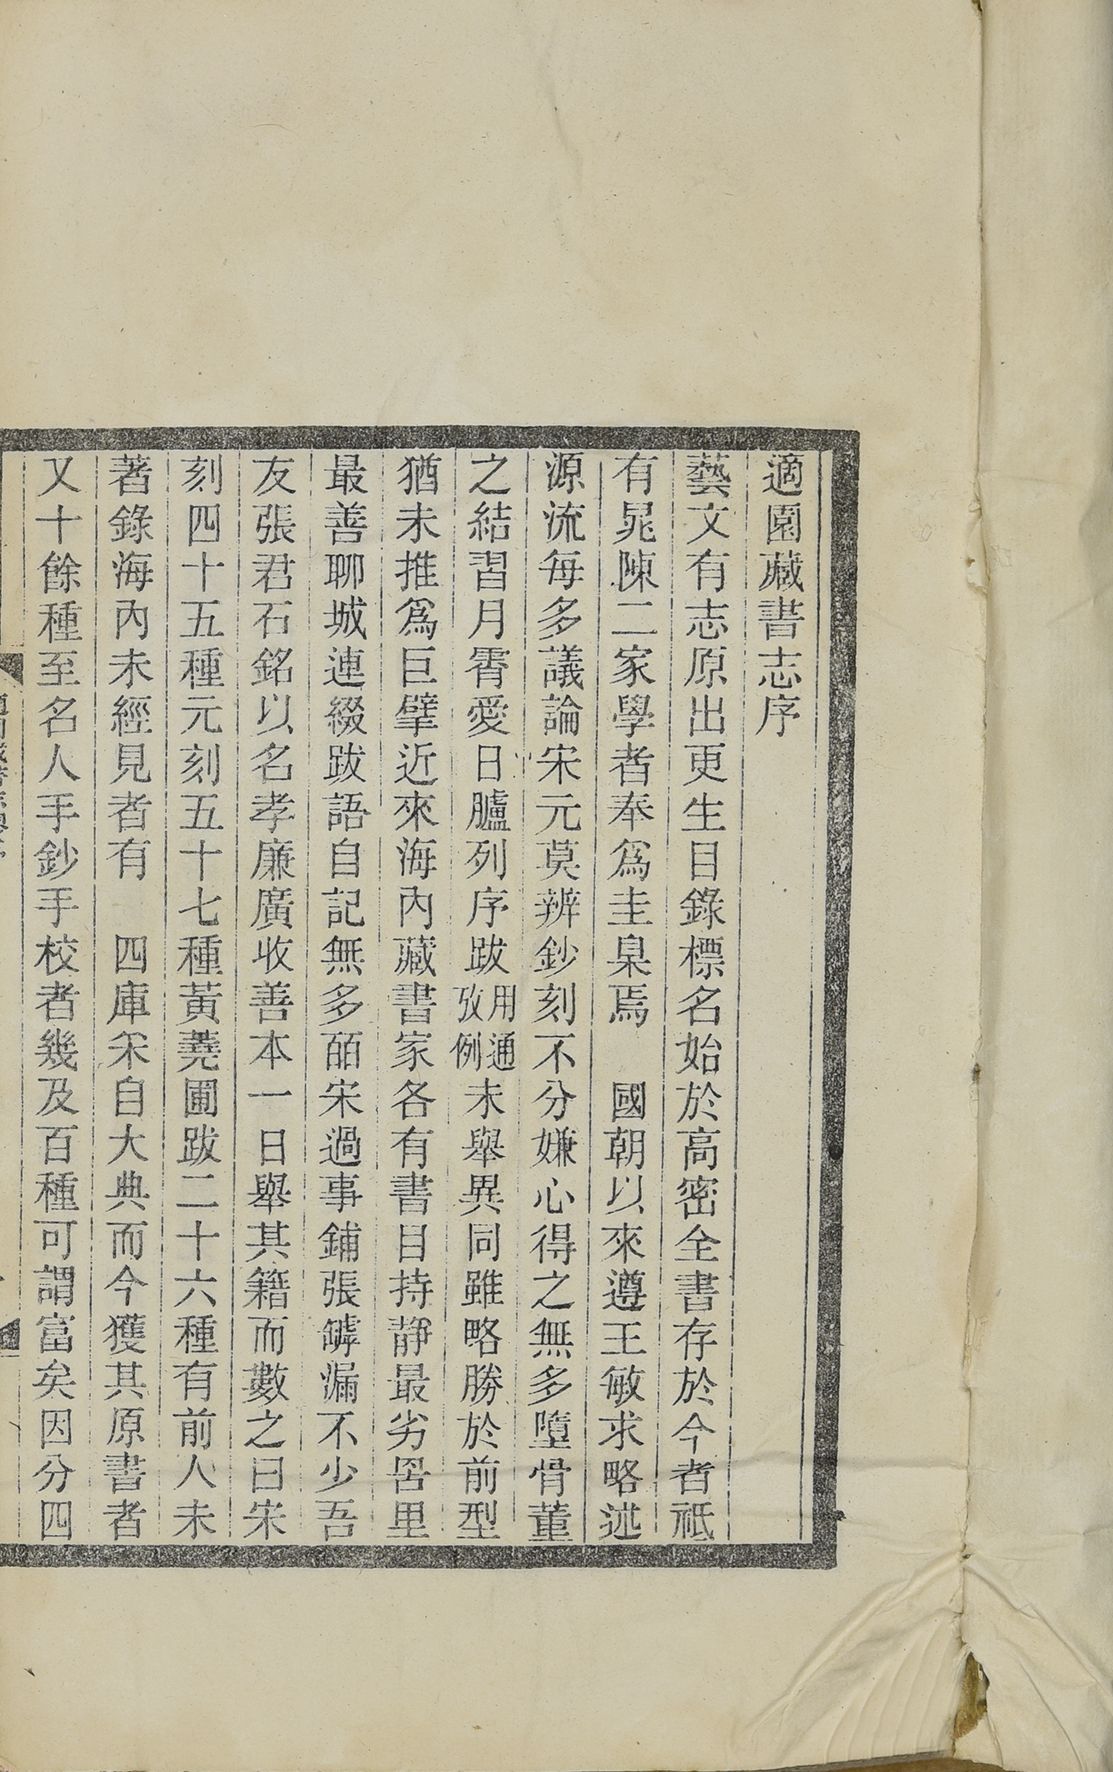 適園藏書志序
藝文有志原出更生目錄標名始於高密全書存於今者祗
有晁陳二家學者奉爲圭臬焉　國朝以來遵王敏求略述
源流每多議論宋元莫辨鈔刻不分嫌心得之無多墮骨董
之結習月霄愛日臚列序跋用通攷例未舉異同雖略勝於前型
猶未推爲巨擘近來海內藏書家各有書目持靜最劣罟里
最善聊城連綴跋語自記無多皕宋過事鋪張罅漏不少吾
友張君石銘以名孝廉廣收善本一日舉其籍而數之曰宋
刻四十五種元刻五十七種黃蕘圃跋二十六種有前人未
著錄海內未經見者有　四庫采自大典而今獲其原書者
又十餘種至名人手鈔手校者幾及百種可謂富矣因分四